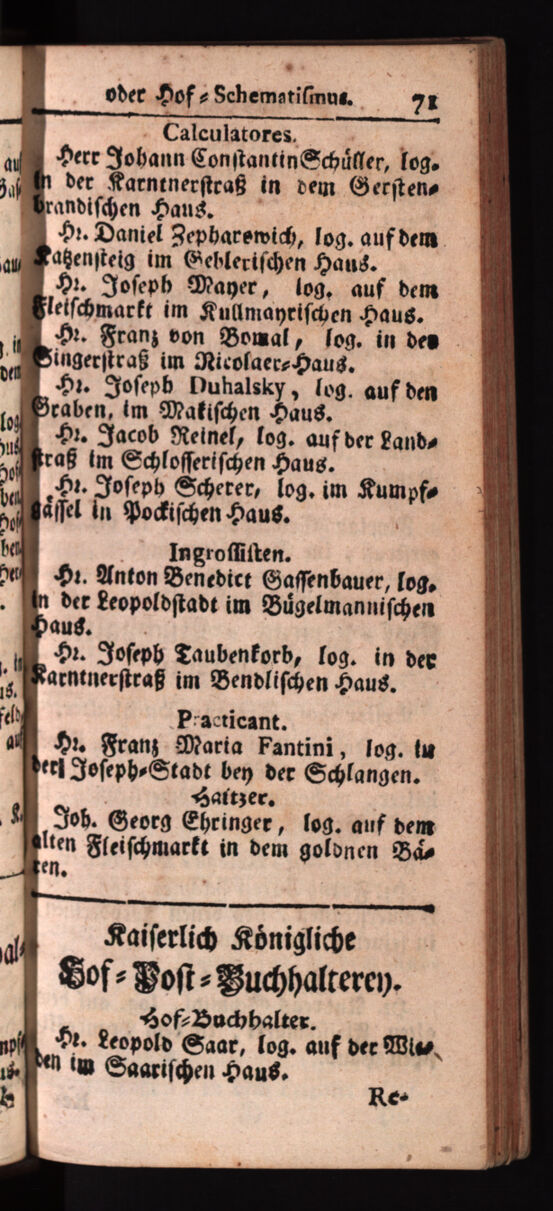 oder Hof-Schematismus. 71
Calculatores.
Herr Johann Constantin Schüller, log.
in der Karntnerstraß in dem Gersten-
brandischen Haus.
Hr. Daniel Zepharowich, log. auf dem
Katzensteig im Geblerischen Haus.
Hr. Joseph Mayer, log. auf dem
Fleischmarkt im Kullmayrischen Haus.
Hr. Franz von Bomal, log. in der
Singerstraß im Nicolaer-Haus.
Hr. Joseph Duhalsky, log. auf den
Graben, im Makischen Haus.
Hr. Jacob Reinel, log. auf der Land-
straß im Schlosserischen Haus.
Hr. Joseph Scherer, log. im Kumpf-
gässel in Pockischen Haus.
Ingrossisten.
Hr. Anton Benedict Gassenbauer, log.
in der Leopoldstadt im Bügelmannischen
Haus.
Hr. Joseph Taubenkorb, log. in der
Karntnerstraß im Bendlischen Haus.
Practicant.
Hr. Franz Maria Fantini, log. in
der Joseph-Stadt bey der Schlangen.
Haitzer.
Joh. Georg Ehringer, log. auf dem
alten Fleischmarkt in dem goldnen Bä-
ren.
Kaiserlich Königliche
Hof-Post-Buchhalterey.
Hof-Buchhalter.
Hr. Leopold Saar, log. auf der Wie-
den im Saarischen Haus.
Re-